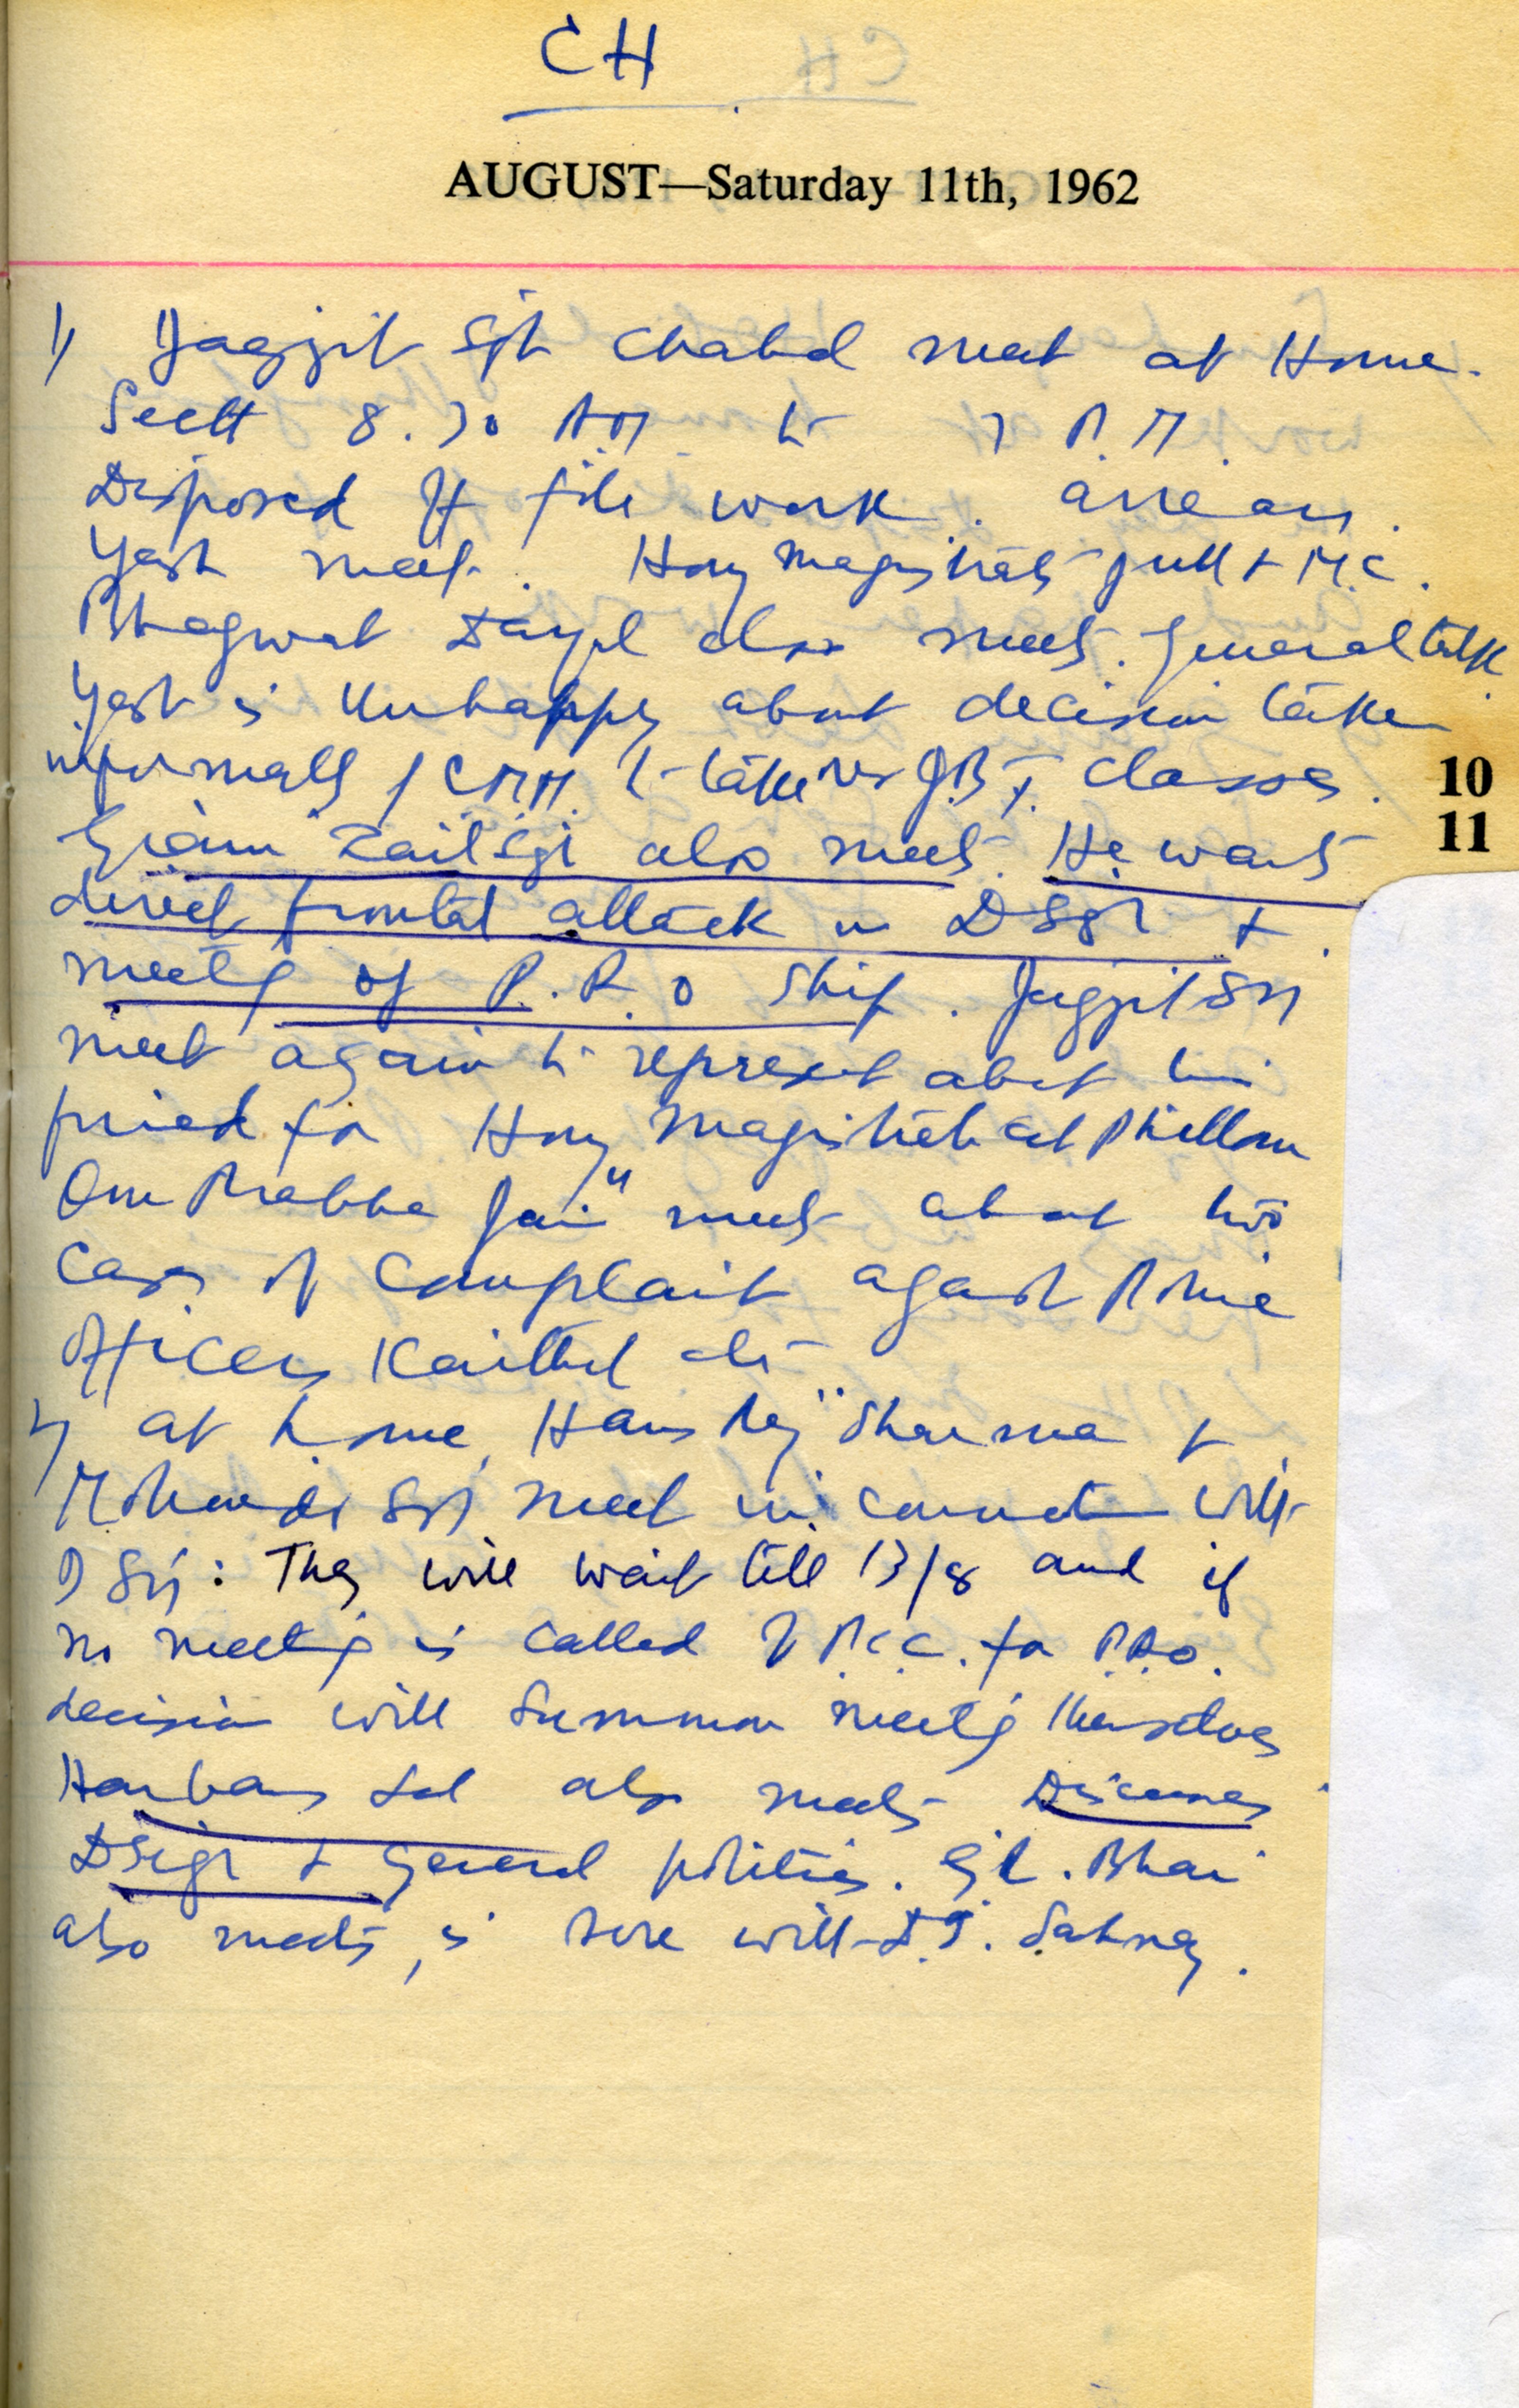 CH
AUGUST—Saturday 11th, 1962
1) Jagjit Sgh meet at Home.
Sectt 8.30 A.M. to 7 P.M.
Disposed off file work. arrears.
Yash meets. Hony Magistrates Jull + M.C.
Bhagwat Dayal also meets. General talk.
Yash is Unhappy about decision taken
informally CMM. to take over J.B.T. Classes.
10
11
Giani Zail Sgh also meets. He wants
direct frontal attack on DSgh +
meetg of P.R.O ship. Jagjit Sgh
meet again to represent abut his
friend for Hony Magistrate at Phillaur
Om Prabha Jain meets about two
Cases of Complaint against Police
Officers Kaithal etc
2) at home Hans Raj Sharma +
Mohinder Sgh meet in connection with
D Sgh: They will wait till 13/8 and if
no meetig is called of P.C.C. for P.R.O.
decision will Summon meetig themselves
Harbans Lal also meets Discusses
DSigh + General politics. G.L. Bhai
also meets, is sore with D.D. Sahney.